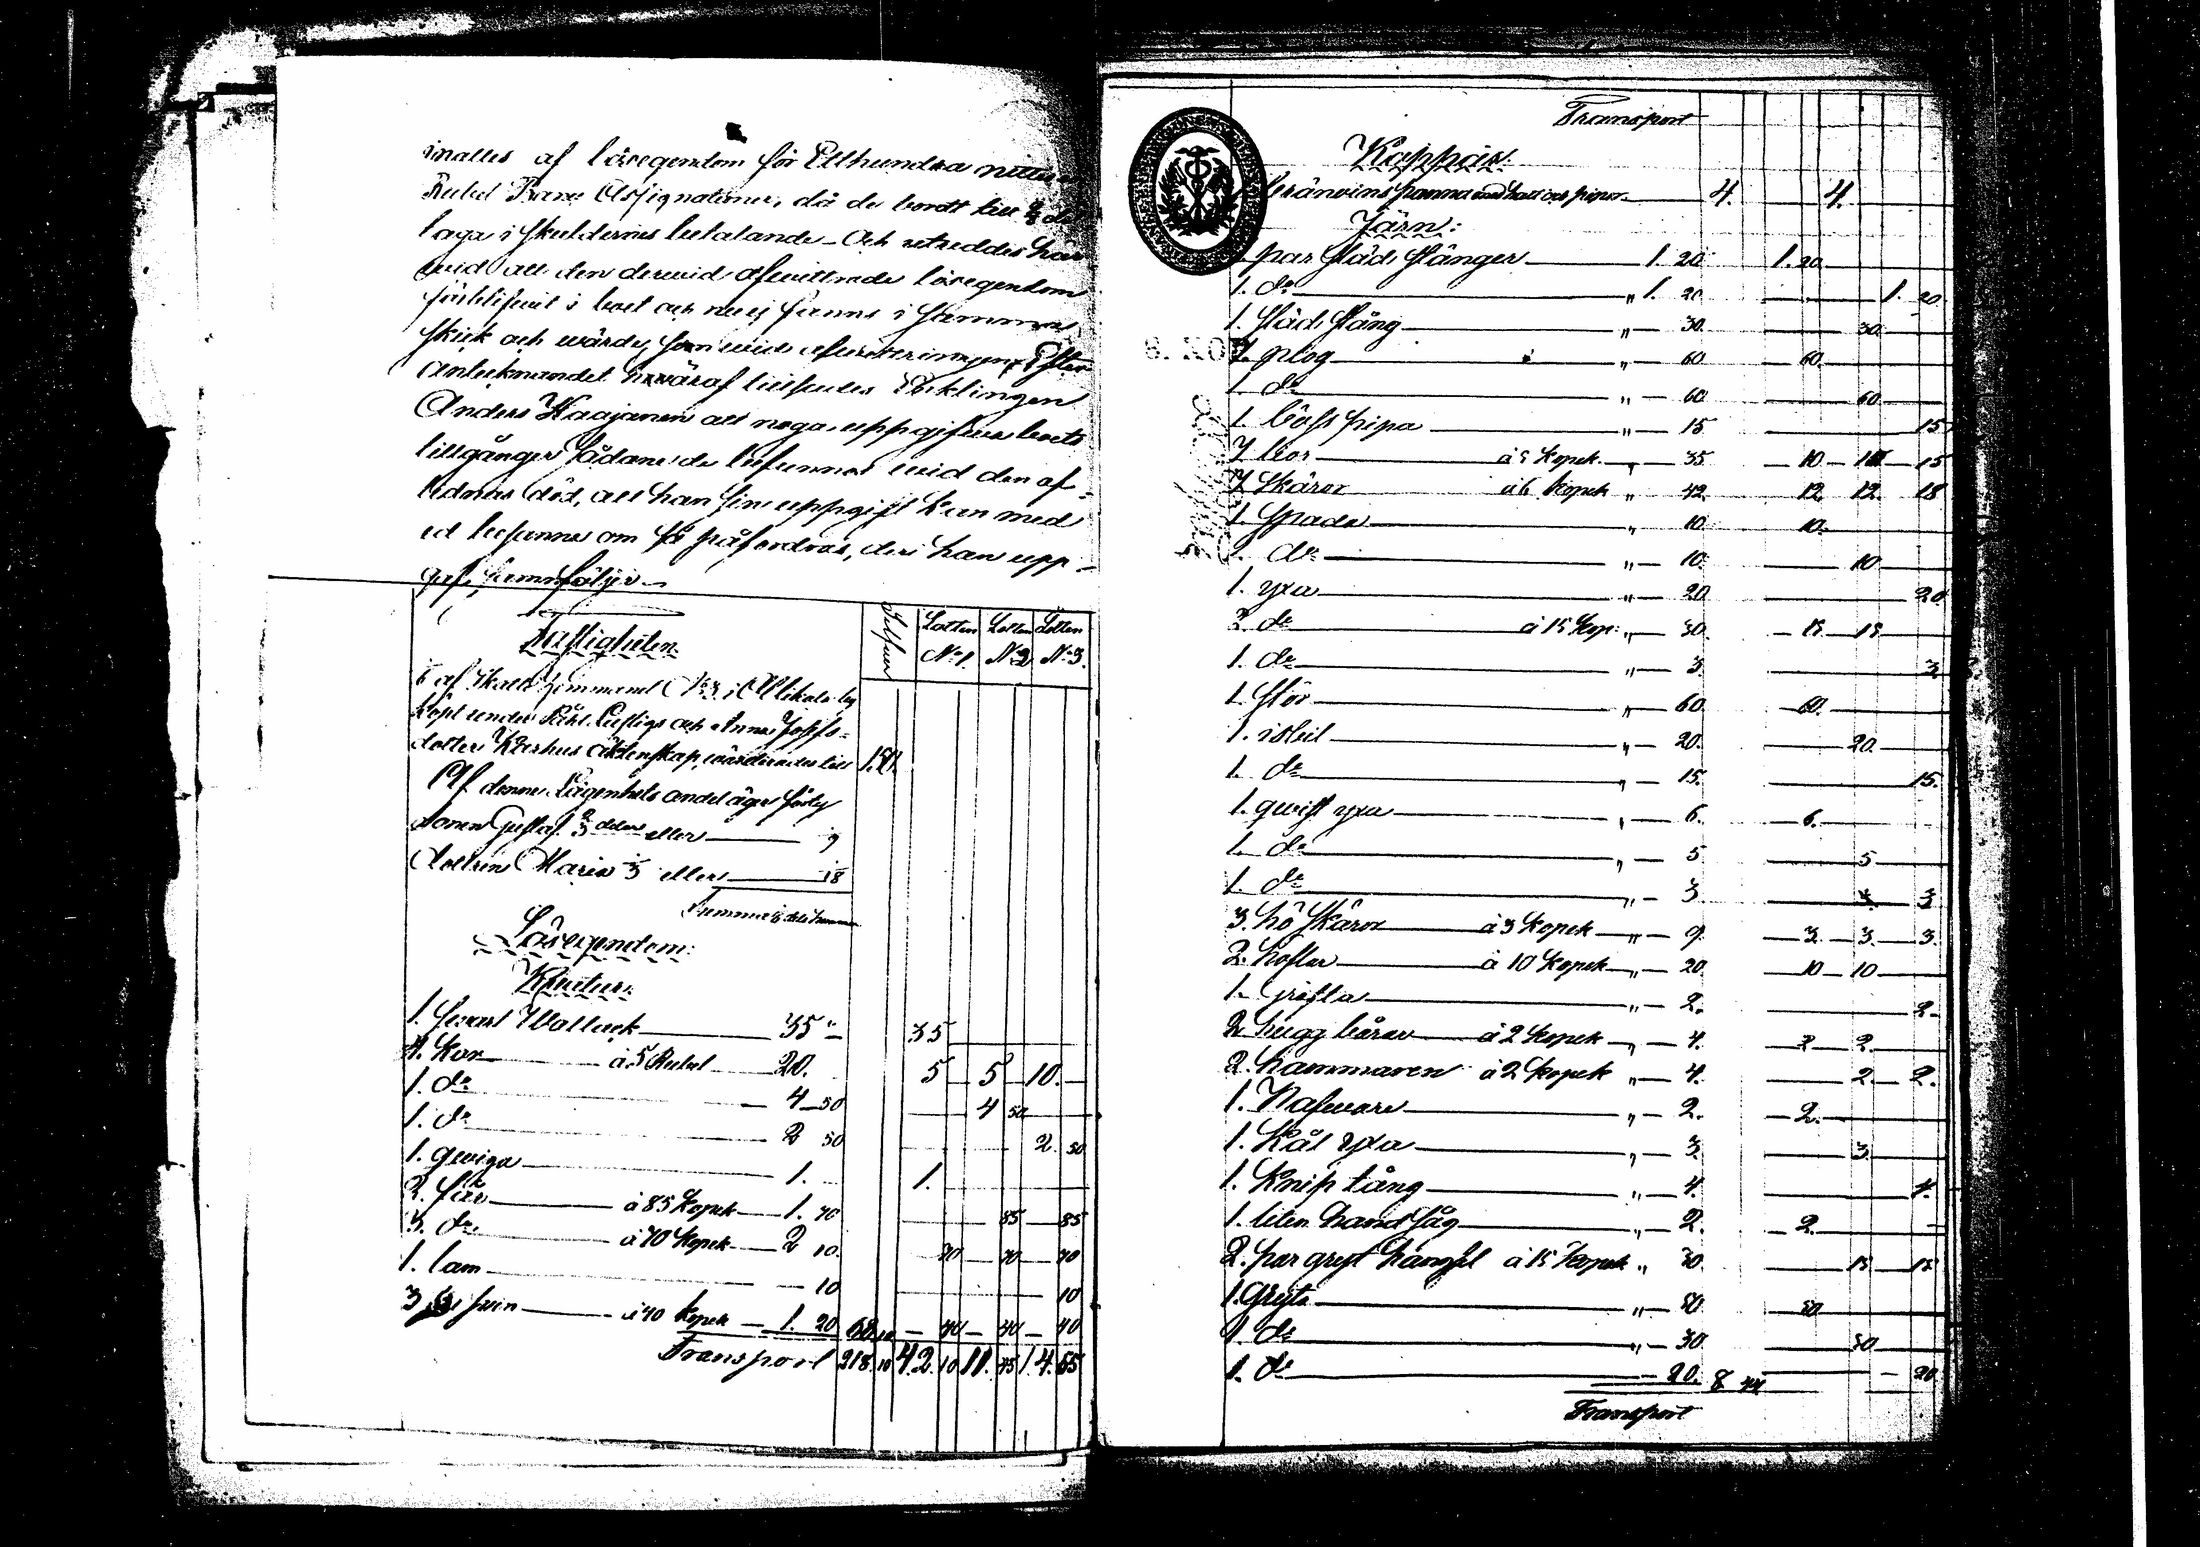 inalles af lösegendom för Etthundra nittio
Rubel Banco Assignationer, då de borde till 2/3 de
laga i skuldernes betalande – Och utreddes här
wid att den derwid afwittrade lösegendom
förblifwit i boet och nu ej fanns i samma
skick och wärde, som wid afwittringen, Efter
anteknandet häraf tillsades Enklingen
Anders Kaajanen att noga uppgifwa boets
tillgångar sådane de befunnos wid den af-
lednas död, att han sin uppgift kan med
ed besanna om så påfordras, den han upp-
gaf, som följer
Fastigheten
Silfwer
Lotten No 1.
Lotten No 2
Lotten No 3.
af Skatt Hemmanet No 3 i
köpt under Påhl Lustigs och Anna Jopps-
dotter Karhus äktenskap, wärderades till 150.
Af denna Lägenhets andel äger
sonen Gustaf 2/3 delar eller
dottren Maria 1/3 eller
Summa
Lösegendom:
Kreatur:
1. swart Wallack 35 " – 35
4. Kor à 5 Rubel 20. 5 5 10.
1. do 4 50 4 50
1. do 2 50 2 50
1. qwiga 1. 1.
2. får à 85 Kopek 1. 70 85 85
3. do à 70 Kopek 2 10. 70 70 70
1. lam 10 10
3 swin à 40 Kopek 1. 20 68 10 40 40 40
Transport 218. 10 42. 10 11. 75 14. 65
Transport
Koppar:
bränvins panna med hatt och pipor 4. 4.
Järn:
par städ stänger 1. 20 1. 20
1. do " 1. 20 1. 20
1. städ stång " 30. 30
1. plog " 60 60.
1. do " 60 60
1. böss pipa " 15 15
7 lior à 5 Kopek " 35 10 10 15
7 Skäror à 6 Kopek " 42 12 12. 18
1. spada " 10 10.
1. do " 10. 10
1. yxa " 20 20
2. do à 15 Kop: " 30 15 15
1. do " 3. 3
1. stör " 60 60.
1. isbil " 20. 20.
1. do " 15. 15.
1. qwist yxa " 6. 6.
1. do " 5 5
1. do " 3 3
3. hö skäror à 3 Kopek " 9 3. 3. 3.
2. hoflar à 10 Kopek " 20 10 10
1. " 2. 2.
2 hugg bårar à 2 Kopek " 4. 2 2.
2. hammaren à 2 Kopek " 4. 2. 2.
1. Nafware " 2. 2.
1. Kål yxa " 3. 3.
1. Knip tång " 4. 4.
1. liten hand såg " 2. 2.
2. par gryt hängsel à 15 Kopek " 30. 15 15
1. Gryta " 50 50
1. do " 30 30
1. do 20. 8 44 20
Transport